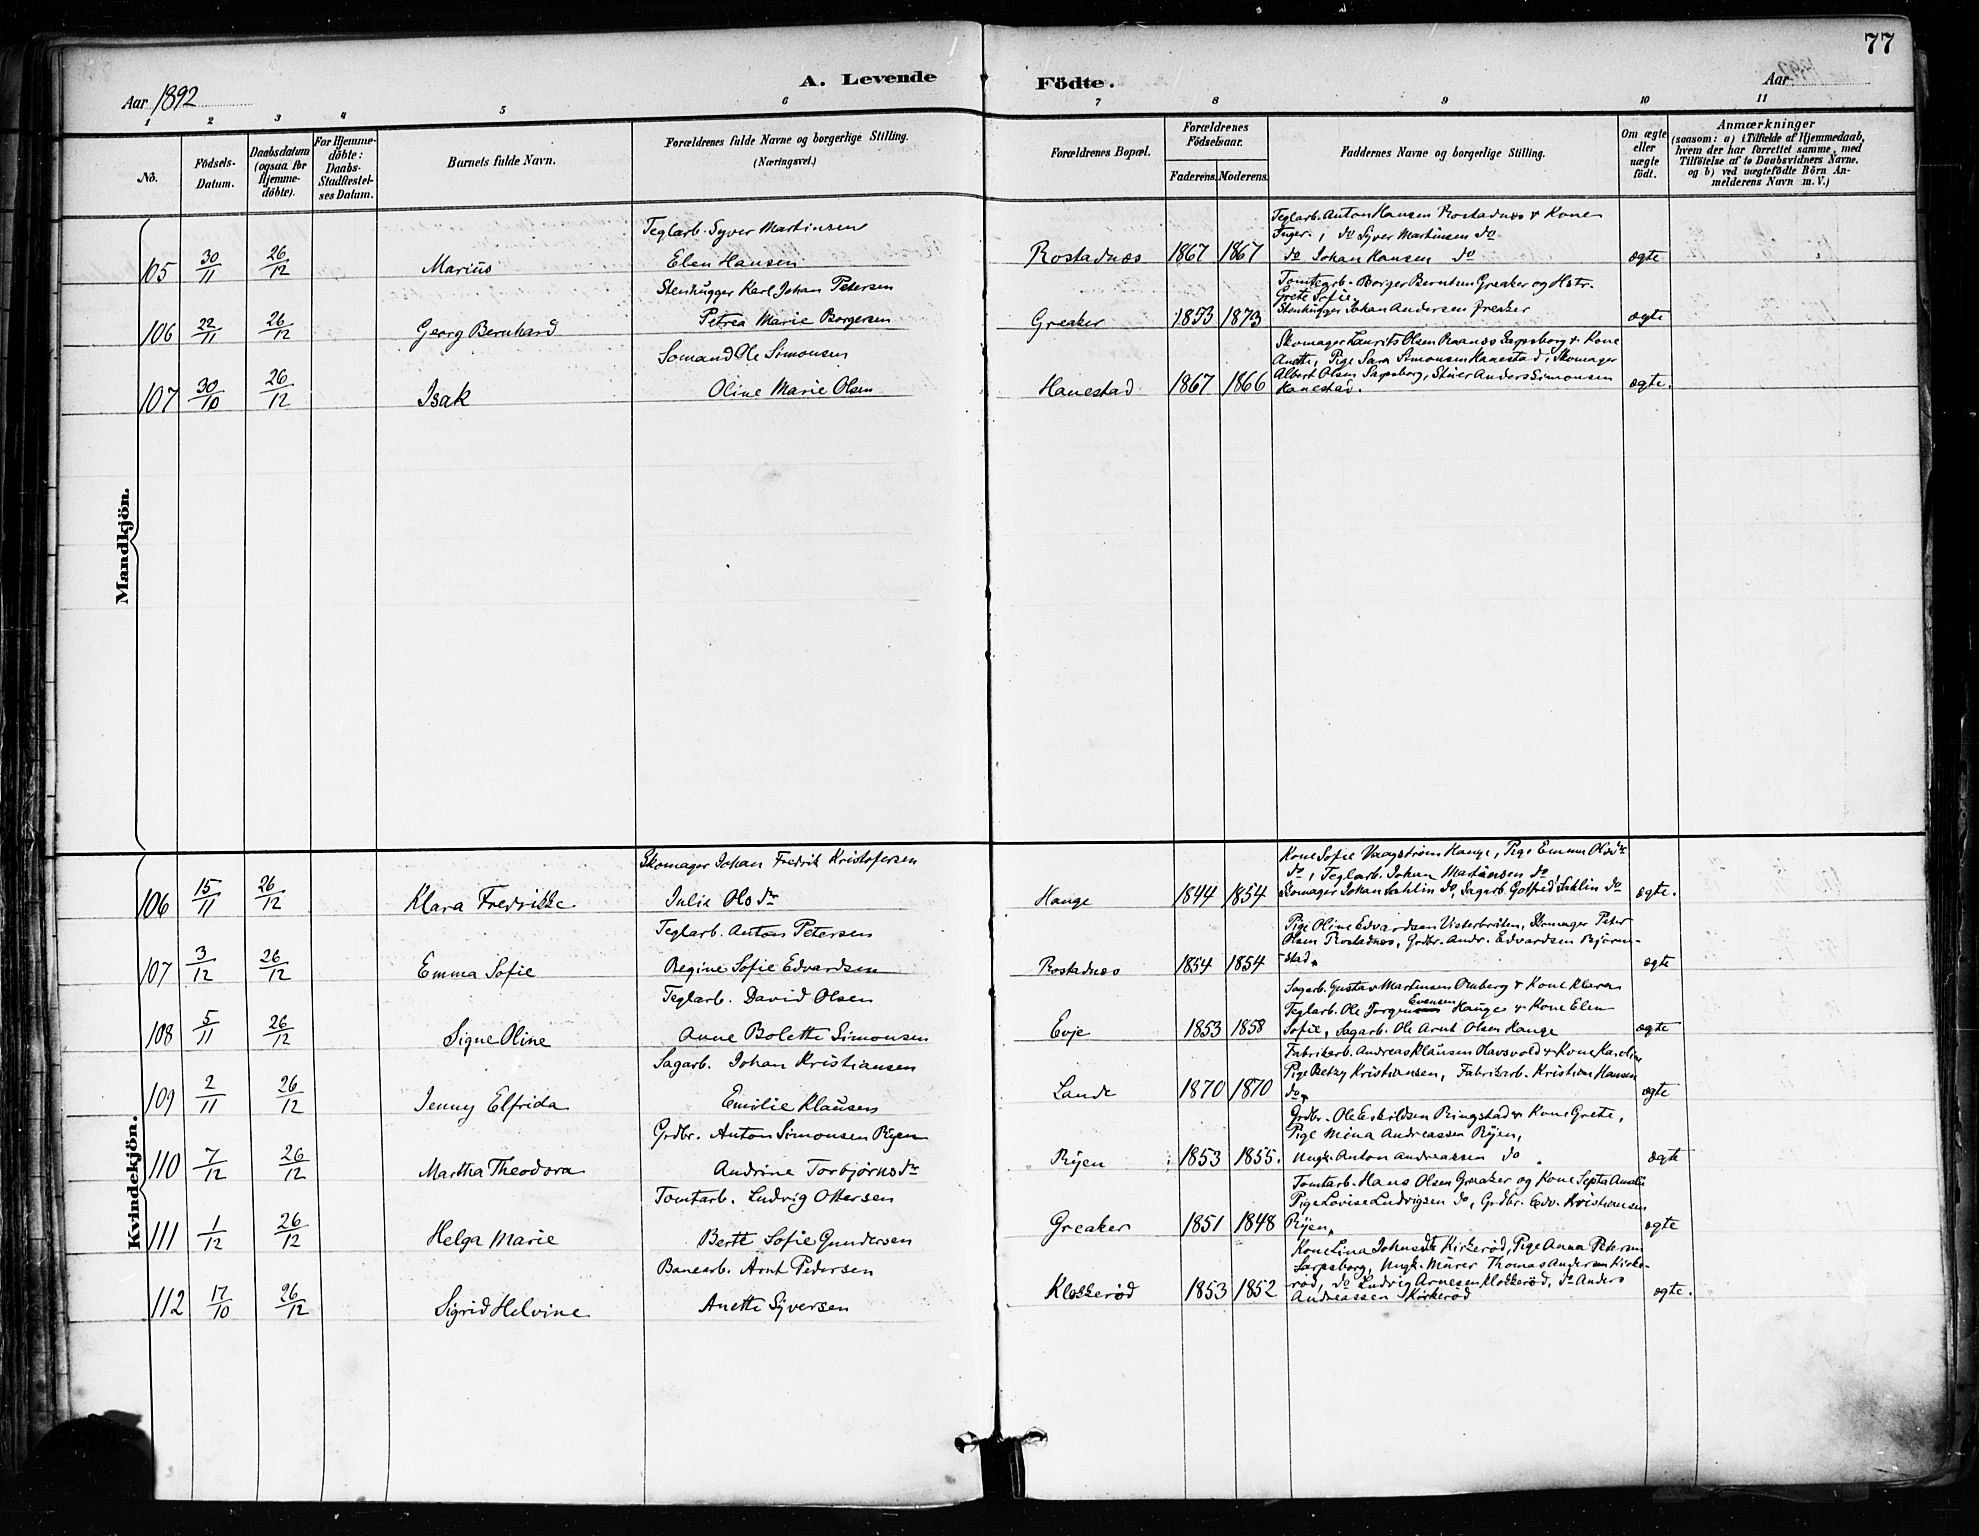 77
A. Levende Födte.
Aar 1892
Aar
1 2 3 4 5 6 7 8 9 10 11
No.
Födsels-Datum.
Daabsdatum (ogsaa for Hjemme-döbte).
For Hjemme-döbte: Daabs-Stadfæstel-ses Datum.
Barnets fulde Navn.
Forældrenes fulde Navne og borgerlige Stilling. (Næringsvei.)
Forældrenes Bopæl.
Forældrenes Födselsaar.
Faderens. Moderens.
Faddernes Navne og borgerlige Stilling.
Om ægte eller uægte födt.
Anmærkninger
(saasom: a) i Tilfælde af Hjemmedaab,
hvem der har forrettet samme, med
Tilföielse af to Daabsvidners Navne,
og b) ved uægtefödte Börn An-
melderens Navn m. V.)
Mandkjön.
Teglarb. Syver Martinsen
Teglarb. Anton Hansen Rostadnæs & Kone
Inger., do Syver Martinsen do
105 30/11 26/12 Marius Elen Hansen Rostadnæs 1867 1867 do Johan Hansen do ægte
Stenhugger Karl Johan Petersen
Tomtearb. Borger Berntsen Greaker og Hstr.
Grete Sofie,
106 22/11 26/12 Georg Bernhard Petrea Marie Borgersen Greaker 1853 1873 Stenhugger Johan Andersen Greaker ægte
Somand Ole Simonsen
Skomager Laurits Olsen Raanæs Sarpsborg & Kone
Anette, Pige Sara Simonsen Hanestad, Skomager
Albert Olsen Sarpsborg, Stuer Anders Simonsen
107 30/10 26/12 Isak Oline Marie Olsen Hanestad 1867 1866 Hanestad. ægte.
Kvindekjön.
Skomager Johan Fredrik Kristofersen
Kone Sofie Vaagström Hauge, Pige Emma Olsdr
do, Teglarb. Johan Martinsen do,
106 15/11 26/12 Klara Fredrikke Julie Olsdr Hauge 1844 1854 Skomager Johan Sahlin do, Sagarb. Gotfred Sahlin do ægte.
Teglarb. Anton Petersen
Pige Oline Edvardsen Visterbråten, Skomager Peter
Olsen Rostadnæs, Grdbr. Andr. Edvardsen Bjørn-
107 3/12 26/12 Emma Sofie Regine Sofie Edvardsen Rostadnæs 1854 1854 stad. ægte
Teglarb. David Olsen
Sagarb. Gustav Martinsen Omberg & Kone Klara
Teglarb. Ole Jorgen Evensen Hauge & Kone Elen
108 5/11 26/12 Signe Oline Anne Bolette Simonsen Evje 1853 1858 Sofie, Sagarb. Ole Arnt Olsen Hauge ægte
Sagarb. Johan Kristiansen
Fabrikarb. Andreas Klausen Havsvold & Kone Karoline
Pige Betzy Kristiansen, Fabrikarb. Kristian Hansen
109 2/11 26/12 Jenny Elfrida Emilie Klausen Lande 1870 1870 do. ægte
Grdbr. Anton Simonsen Ryen
Grdbr. Ole Eskildsen Ringstad & Kone Grete,
Pige Mina Andreassen Ryen,
110 7/12 26/12 Martha Theodora Andrine Torbjørnsdr Ryen 1853 1855. Ungk. Anton Andreassen do ægte
Tomtarb. Ludvig Ottersen
Tomtarb. Hans Olsen Greaker og Kone Septa Amalie
Pige Lovise Ludvigsen do, Grdbr. Edv. Kristiansen
111 1/12 26/12 Helga Marie Berte Sofie Gundersen Greaker 1851 1848 Ryen. ægte
Banearb. Arnt Pedersen
Kone Lina Johnsdtr Kirkerød, Pige Anna Petersen
Sarpsborg, Ungk. Murer Thomas Andersen Kirke-
rød, do Ludvig Arnesen Klokkerød, do Anders
112 17/10 26/12 Sigrid Helvine Anette Syversen Klokkerød 1853 1852 Andreassen Kirkerød ægte.